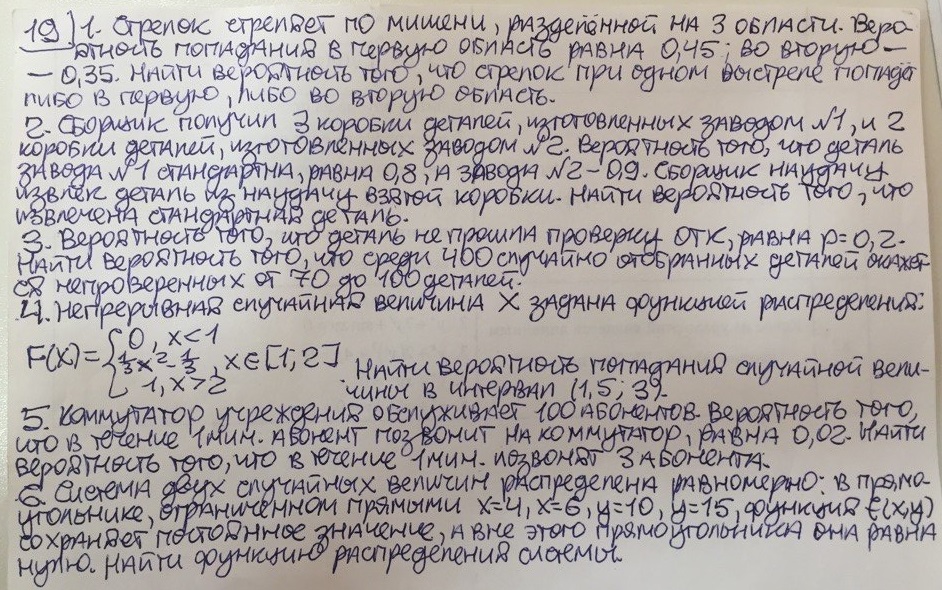 19) 1. Стрелок стреляет по мишени, разделённой на 3 области. Веро-
ятность попадания в первую область равна 0,45; во вторую –
– 0,35. Найти вероятность того, что стрелок при одном выстреле попадёт
либо в первую, либо во вторую область.
2. Сборщик получил 3 коробки деталей, изготовленных заводом №1, и 2
коробки деталей, изготовленных заводом №2. Вероятность того, что деталь
завода №1 стандартна, равна 0,8, а завода №2 – 0,9. Сборщик наудачу
извлёк деталь из наудачу взятой коробки. Найти вероятность того, что
извлечена стандартная деталь.
3. Вероятность того, что деталь не прошла проверку ОТК, равна p=0,2.
Найти вероятность того, что среди 400 случайно отобранных деталей окажет-
ся непроверенных от 70 до 100 деталей.
4. Непрерывная случайная величина X задана функцией распределения:
F(x)={0, x<1
1/3x²-1/3, x∈[1,2]
1, x>2
Найти вероятность попадания случайной вели-
чины в интервал (1,5; 3).
5. Коммутатор учреждения обслуживает 100 абонентов. Вероятность того,
что в течение 1 мин. абонент позвонит на коммутатор, равна 0,02. Найти
вероятность того, что в течение 1 мин. позвонят 3 абонента.
6. Система двух случайных величин распределена равномерно: в прямо-
угольнике, ограниченном прямыми x=4, x=6, y=10, y=15, функция f(x,y)
сохраняет постоянное значение, а вне этого прямоугольника она равна
нулю. Найти функцию распределения системы.